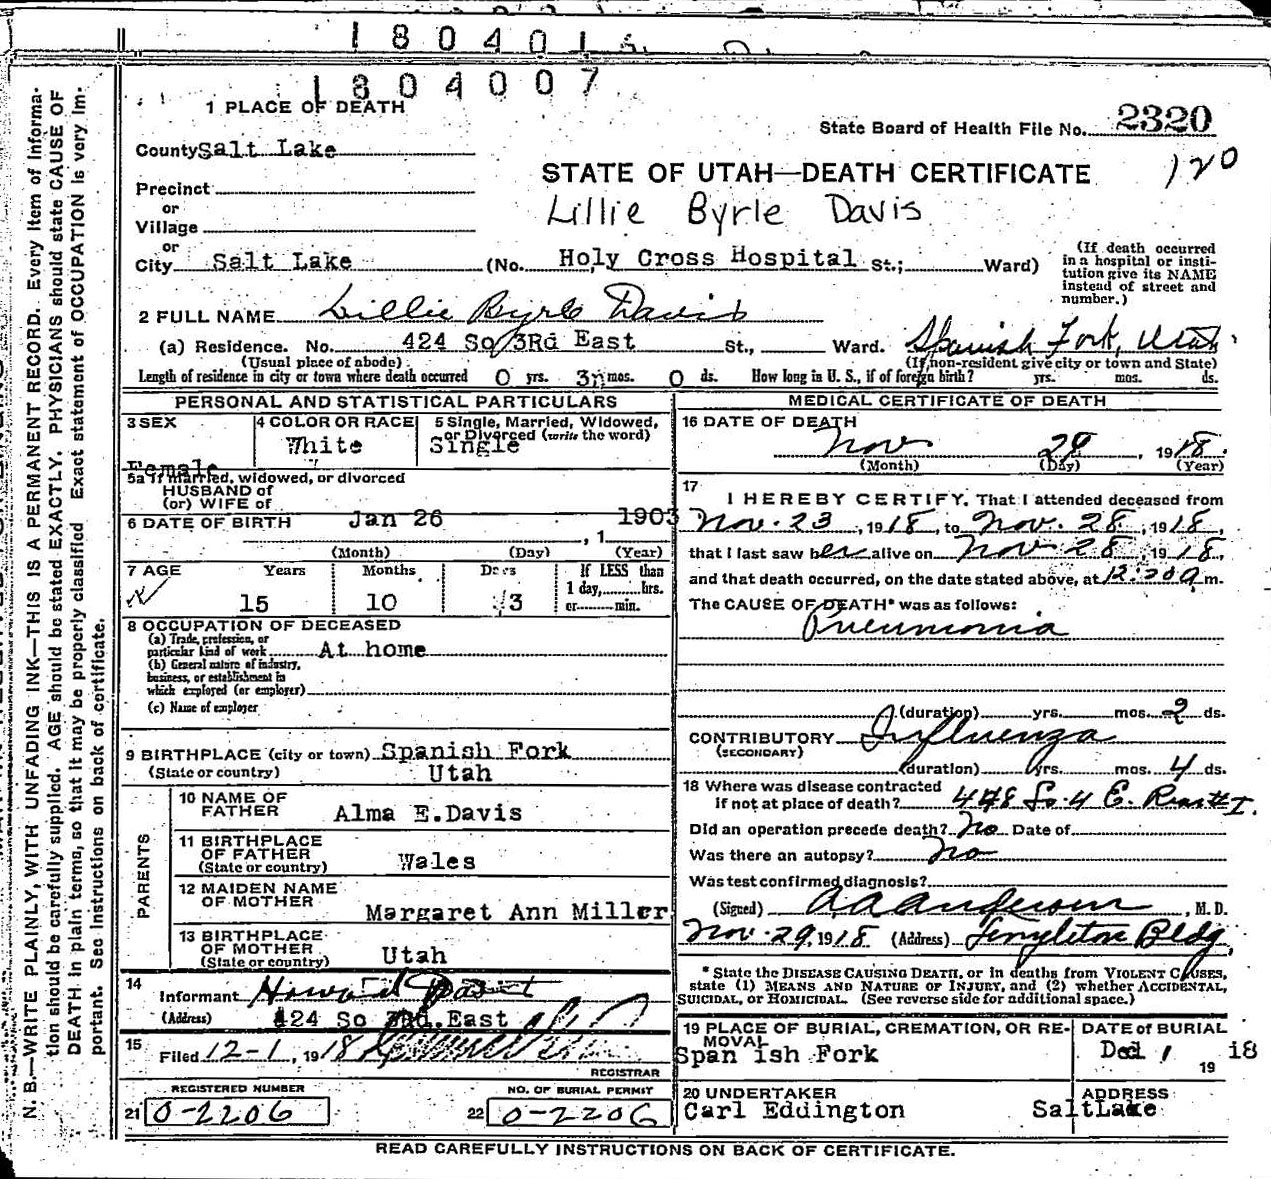 180401
1804007
1 PLACE OF DEATH
State Board of Health File No. 2320
County Salt Lake
STATE OF UTAH—DEATH CERTIFICATE
120
Precinct
or
Village
Lillie Byrle Davis
or
City Salt Lake (No. Holy Cross Hospital St.; Ward)
(If death occurred in a hospital or institution give its NAME instead of street and number.)
2 FULL NAME Lillie Byrle Davis
(a) Residence. No. 424 So 3Rd East St., Ward. Spanish Fork, Utah
(Usual place of abode) (If non-resident give city or town and State)
Length of residence in city or town where death occurred 0 yrs. 3 mos. 0 ds. How long in U. S., if of foreign birth? yrs. mos. ds.
PERSONAL AND STATISTICAL PARTICULARS
3 SEX
Female
4 COLOR OR RACE
White
5 Single, Married, Widowed, or Divorced (write the word)
Single
5a If married, widowed, or divorced
HUSBAND of
(or) WIFE of
6 DATE OF BIRTH Jan 26 1903
, 1
(Month) (Day) (Year)
7 AGE Years Months Days If LESS than
1 day, hrs.
or min.
15 10 3
8 OCCUPATION OF DECEASED
(a) Trade, profession, or
particular kind of work At home
(b) General nature of industry,
business, or establishment in
which employed (or employer)
(c) Name of employer
9 BIRTHPLACE (city or town) Spanish Fork
(State or country) Utah
PARENTS
10 NAME OF
FATHER Alma E.Davis
11 BIRTHPLACE
OF FATHER
(State or country) Wales
12 MAIDEN NAME
OF MOTHER Margaret Ann Miller
13 BIRTHPLACE
OF MOTHER
(State or country) Utah
14
Informant Howard
(Address) 424 So 3Rd.East
15 Filed 12-1, 1918
REGISTRAR
REGISTERED NUMBER
21 0-2206
NO. OF BURIAL PERMIT
22 0-2206
MEDICAL CERTIFICATE OF DEATH
16 DATE OF DEATH
Nov 29, 1918
(Month) (Day) (Year)
17
I HEREBY CERTIFY, That I attended deceased from
Nov. 23, 1918, to Nov. 28, 1918,
that I last saw her alive on Nov 28, 1918,
and that death occurred, on the date stated above, at 12:20a m.
The CAUSE OF DEATH* was as follows:
Pneumonia
(duration) yrs. mos. 2 ds.
CONTRIBUTORY Influenza
(SECONDARY)
(duration) yrs. mos. 4 ds.
18 Where was disease contracted
if not at place of death? So. 4 E.
Did an operation precede death? No Date of
Was there an autopsy? No
Was test confirmed diagnosis?
(Signed) A A Anderson, M. D.
Nov. 29, 1918 (Address) Templeton Bldg,
* State the DISEASE CAUSING DEATH, or in deaths from VIOLENT CAUSES,
state (1) MEANS AND NATURE OF INJURY, and (2) whether ACCIDENTAL,
SUICIDAL, or HOMICIDAL. (See reverse side for additional space.)
19 PLACE OF BURIAL, CREMATION, OR REMOVAL
Span ish Fork
DATE of BURIAL
Dec 1 1918
20 UNDERTAKER
Carl Eddington
ADDRESS
SaltLake
READ CAREFULLY INSTRUCTIONS ON BACK OF CERTIFICATE.
N. B.—WRITE PLAINLY, WITH UNFADING INK—THIS IS A PERMANENT RECORD. Every item of information
should be carefully supplied. AGE should be stated EXACTLY. PHYSICIANS should state CAUSE OF
DEATH in plain terms, so that it may be properly classified. Exact statement of OCCUPATION is very important.
See instructions on back of certificate.